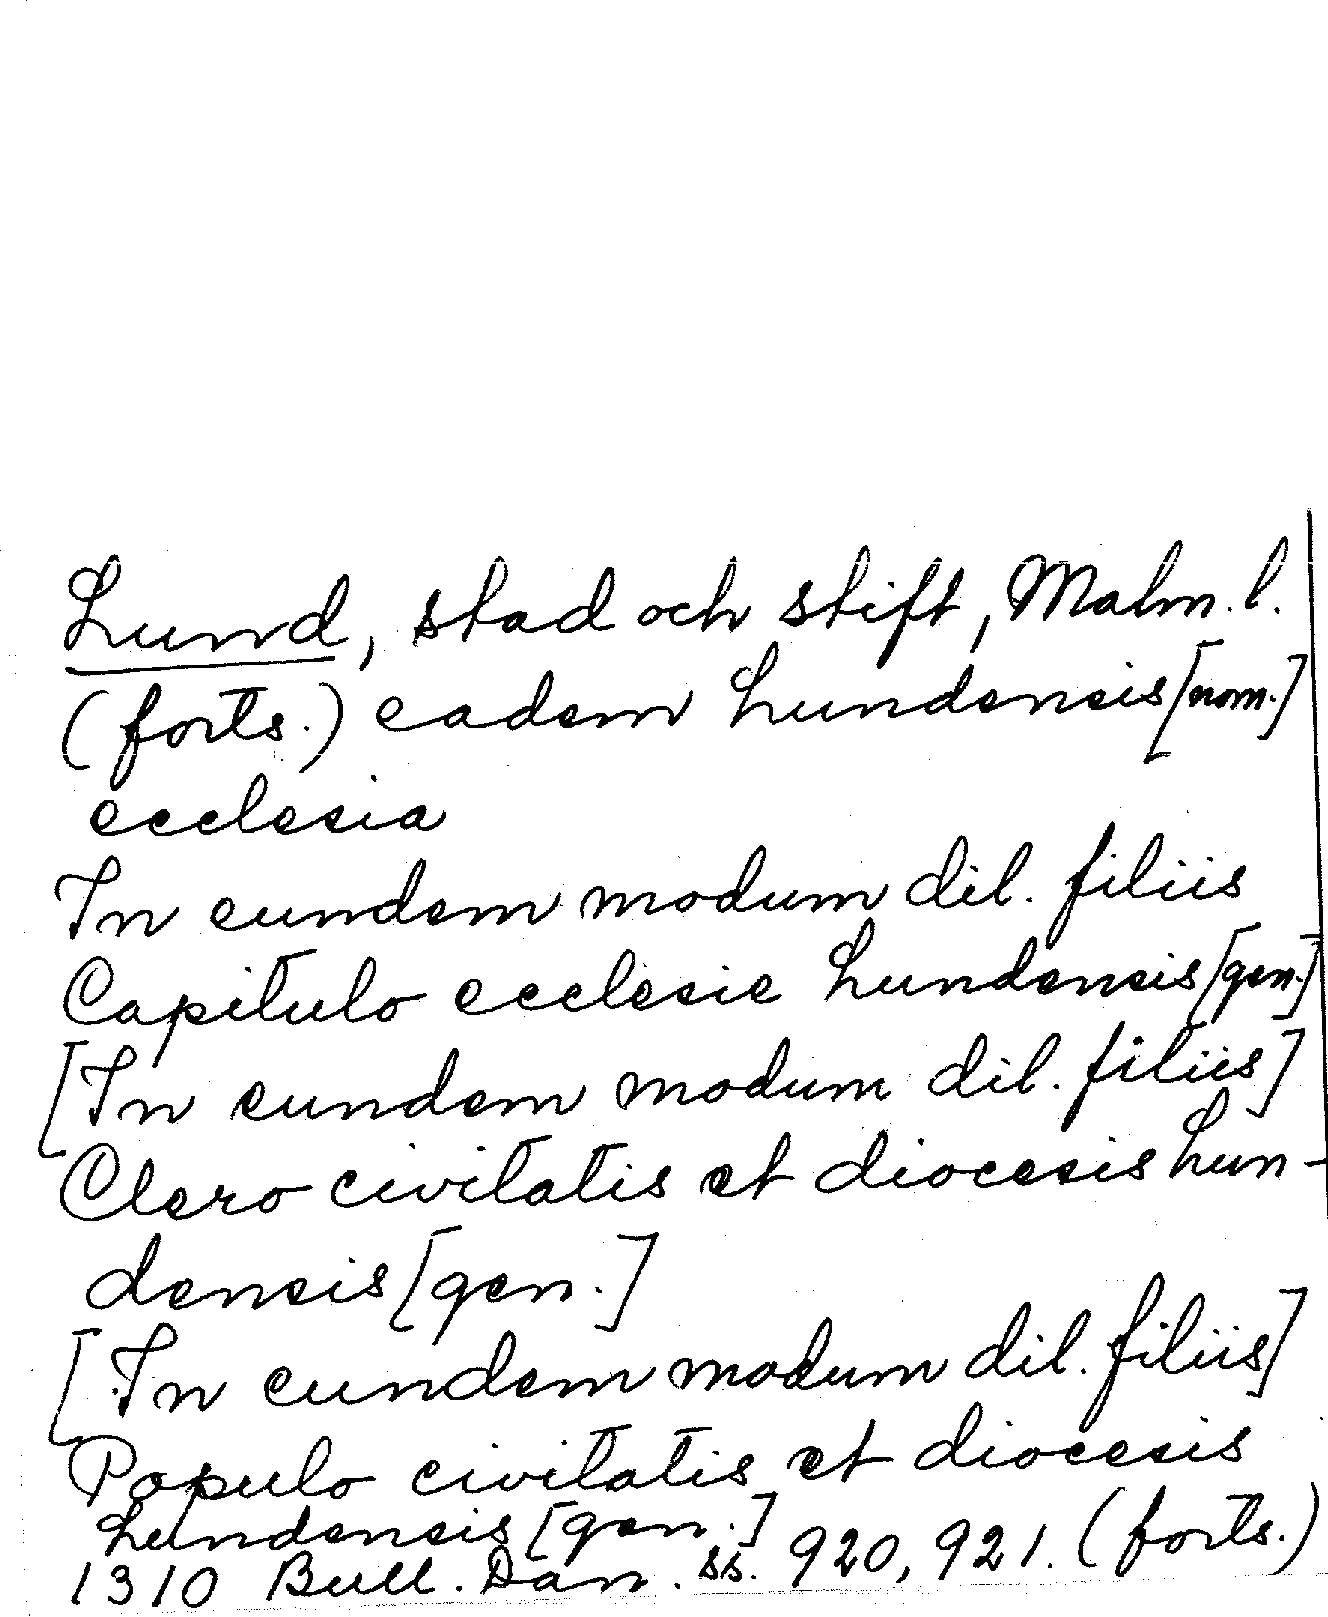 Lund, stad och stift, Malm. l.
(forts.) eadem Lundensis [nom.]
ecclesia
In eundem modum dil. filiis
Capitulo ecclesie Lundensis [gen.]
[In eundem modum dil. filiis]
Clero civitatis et diocesis Lun-
densis [gen.]
[In eundem modum dil. filiis]
Populo civitatis et diocesis
Lundensis [gen.]
1310 Bull. Dan. ss. 920, 921. (forts.)